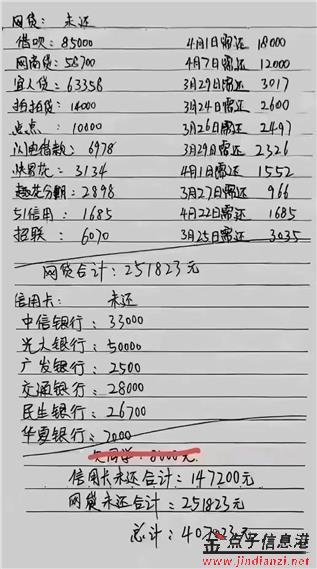 网贷: 未还
借呗: 85000 4月1日需还 18000
网商贷: 58700 4月7日需还 12000
宜人贷: 63358 3月29日需还 3017
拍拍贷: 14000 3月24日需还 2600
点点: 10000 3月26日需还 2497
闪电借款: 6978 3月29日需还 2326
快易花: 3134 4月1日需还 1552
趣花分期: 2898 3月27日需还 966
51信用: 1685 4月22日需还 1685
招联: 6070 3月25日需还 3035
网贷合计: 251823元
信用卡: 未还
中信银行: 33000
光大银行: 50000
广发银行: 2500
交通银行: 28000
民生银行: 26700
华夏银行: 7000
欠同学: 8000元
信用卡未还合计: 147200元
网贷未还合计: 251823元
总计: 407023元
金点子信息港
www.jindianzi.net